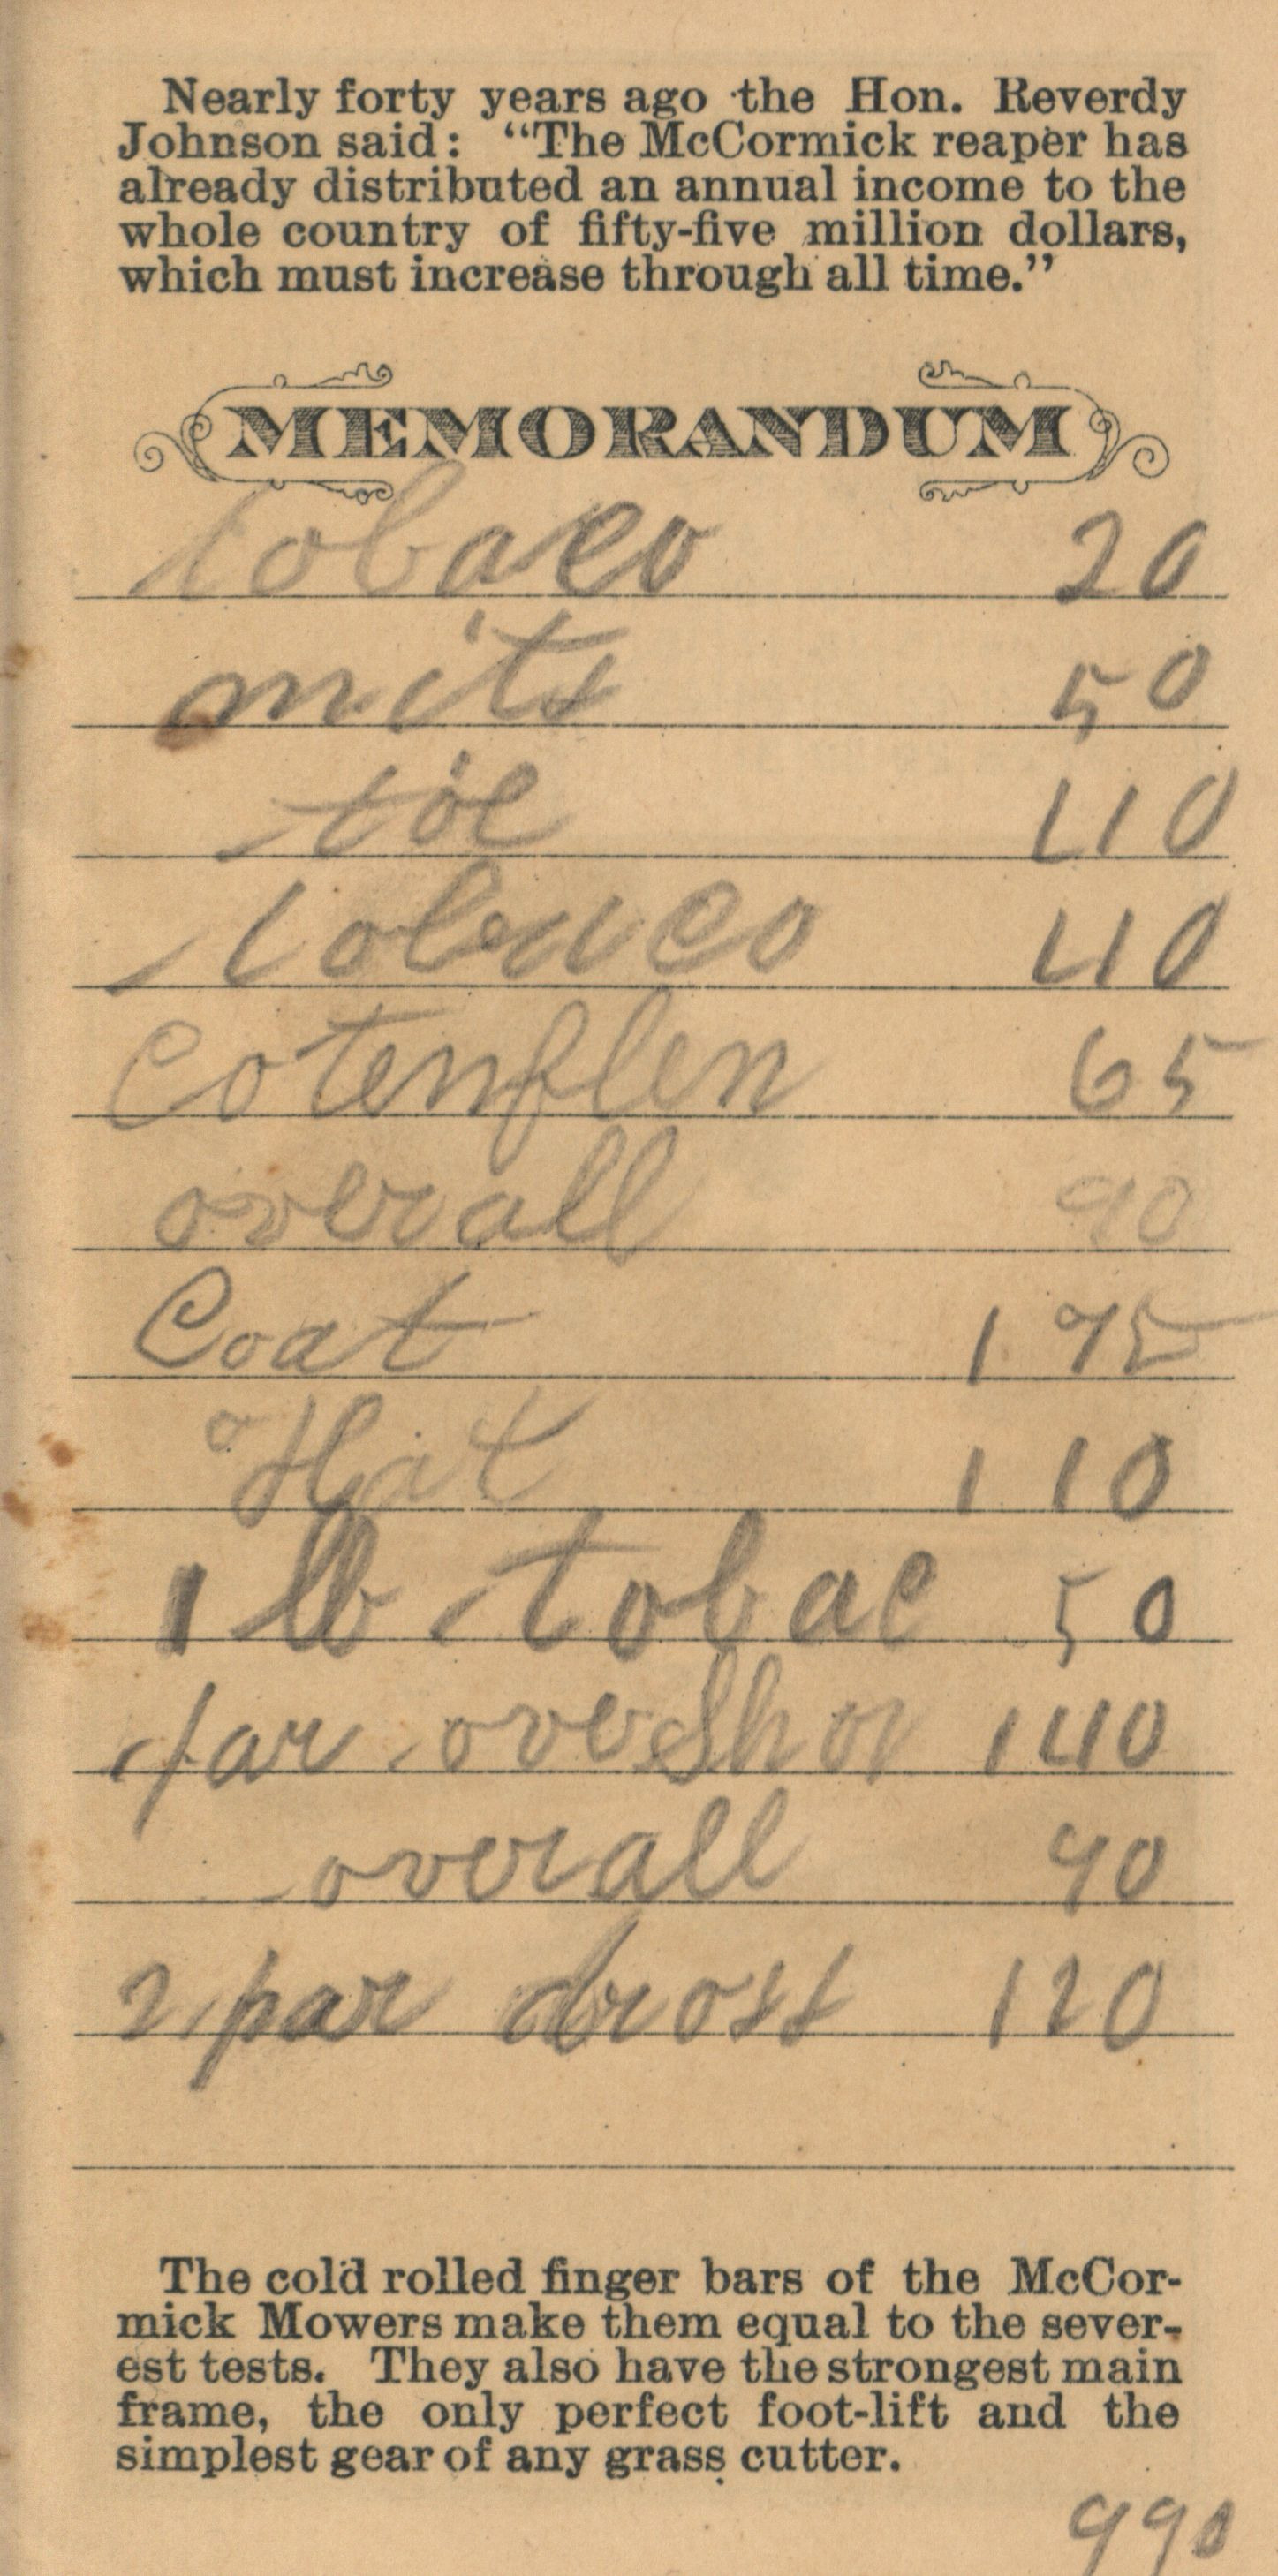 Nearly forty years ago the Hon. Reverdy
Johnson said: "The McCormick reaper has
already distributed an annual income to the
whole country of fifty-five million dollars,
which must increase through all time."
MEMORANDUM
tobaco 20
mits 50
tie 40
tobaco 40
Cotenflen 65
overall 90
Coat 1 75
Hat 1 10
1 lb tobac 50
par oveshor 140
overall 90
2 par dross 120
The cold rolled finger bars of the McCor-
mick Mowers make them equal to the sever-
est tests. They also have the strongest main
frame, the only perfect foot-lift and the
simplest gear of any grass cutter.
990